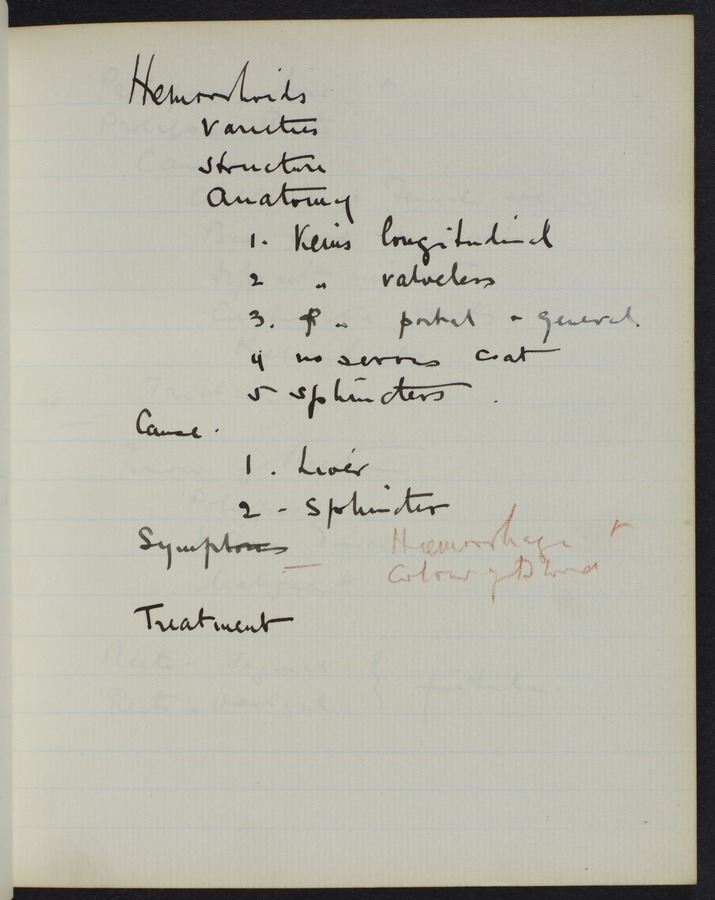 Hemorrhoids
Varieties
Structure
Anatomy
1. Veins longitudinal
2 " valveless
3. " portal - general.
4 no serous coat
5 Sphincters.
Cause.
1. Liver
2 - Sphincter
Symptoms Hæmorrhage +
Colour of Blood
Treatment